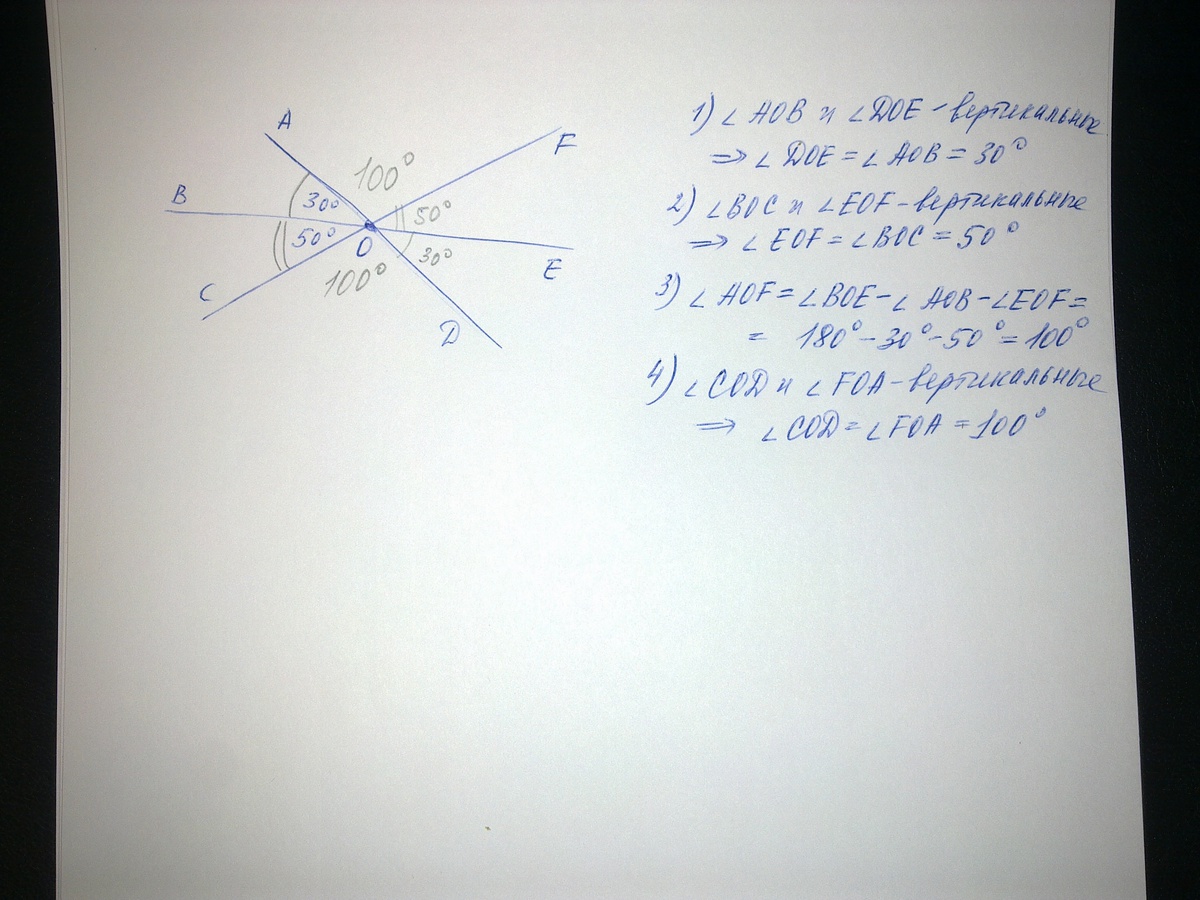 A
F
100°
B
30°
50°
50°
O
30°
E
C
100°
D
1) ∠AOB и ∠DOE - вертикальные
⇒ ∠DOE = ∠AOB = 30°
2) ∠BOC и ∠EOF - вертикальные
⇒ ∠EOF = ∠BOC = 50°
3) ∠AOF = ∠BOE - ∠AOB - ∠EOF =
= 180° - 30° - 50° = 100°
4) ∠COD и ∠FOA - вертикальные
⇒ ∠COD = ∠FOA = 100°